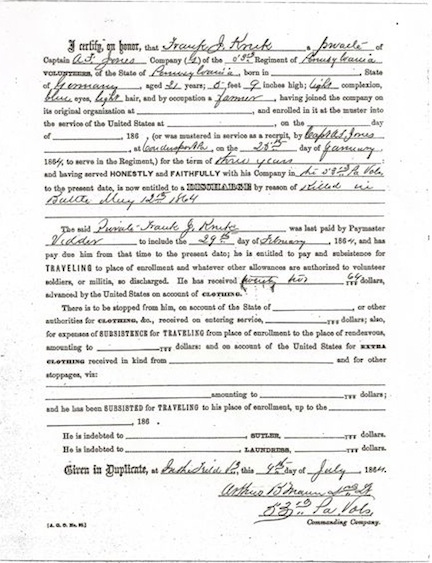 I certify, on honor, that Frank J. Krick a private of
Captain A.F. Jones Company ( ) of the 53rd Regiment of Pennsylvania
VOLUNTEERS, of the State of Pennsylvania, born in , State
of Germany, aged 21 years; 5 feet 9 inches high; light complexion,
blue eyes, light hair, and by occupation a farmer, having joined the company on
its original organization at , and enrolled in it at the muster into
the service of the United States at , on the day
of , 186 , (or was mustered in service as a recruit, by Capt A.F. Jones
, at Coudersport Pa, on the 25th day of January
1864, to serve in the Regiment,) for the term of three years :
and having served HONESTLY and FAITHFULLY with his Company in the 53rd Pa Vols
to the present date, is now entitled to a DISCHARGE by reason of Killed in
Battle May 12th 1864
The said Private Frank J. Krick was last paid by Paymaster
Vedder to include the 29th day of February, 1864, and has
pay due him from that time to the present date; he is entitled to pay and subsistence for
TRAVELING to place of enrollment and whatever other allowances are authorized to volunteer
soldiers, or militia, so discharged. He has received twenty two 64/100 dollars,
advanced by the United States on account of CLOTHING.
There is to be stopped from him, on account of the State of , or other
authorities for CLOTHING, &c., received on entering service, /100 dollars; also,
for expenses of SUBSISTENCE for TRAVELING from place of enrollment to the place of rendezvous,
amounting to /100 dollars: and on account of the United States for EXTRA
CLOTHING received in kind from and for other
stoppages, viz:
amounting to /100 dollars:
and he has been SUBSISTED for TRAVELING to his place of enrollment, up to the
, 186 .
He is indebted to , SUTLER, /100 dollars.
He is indebted to , LAUNDRESS, /100 dollars.
Given in Duplicate, at In the Field Va, this 4th day of July, 1864.
Arthur B Mann
53rd Pa Vols
Commanding Company.
[A. G. O. No. 95.]